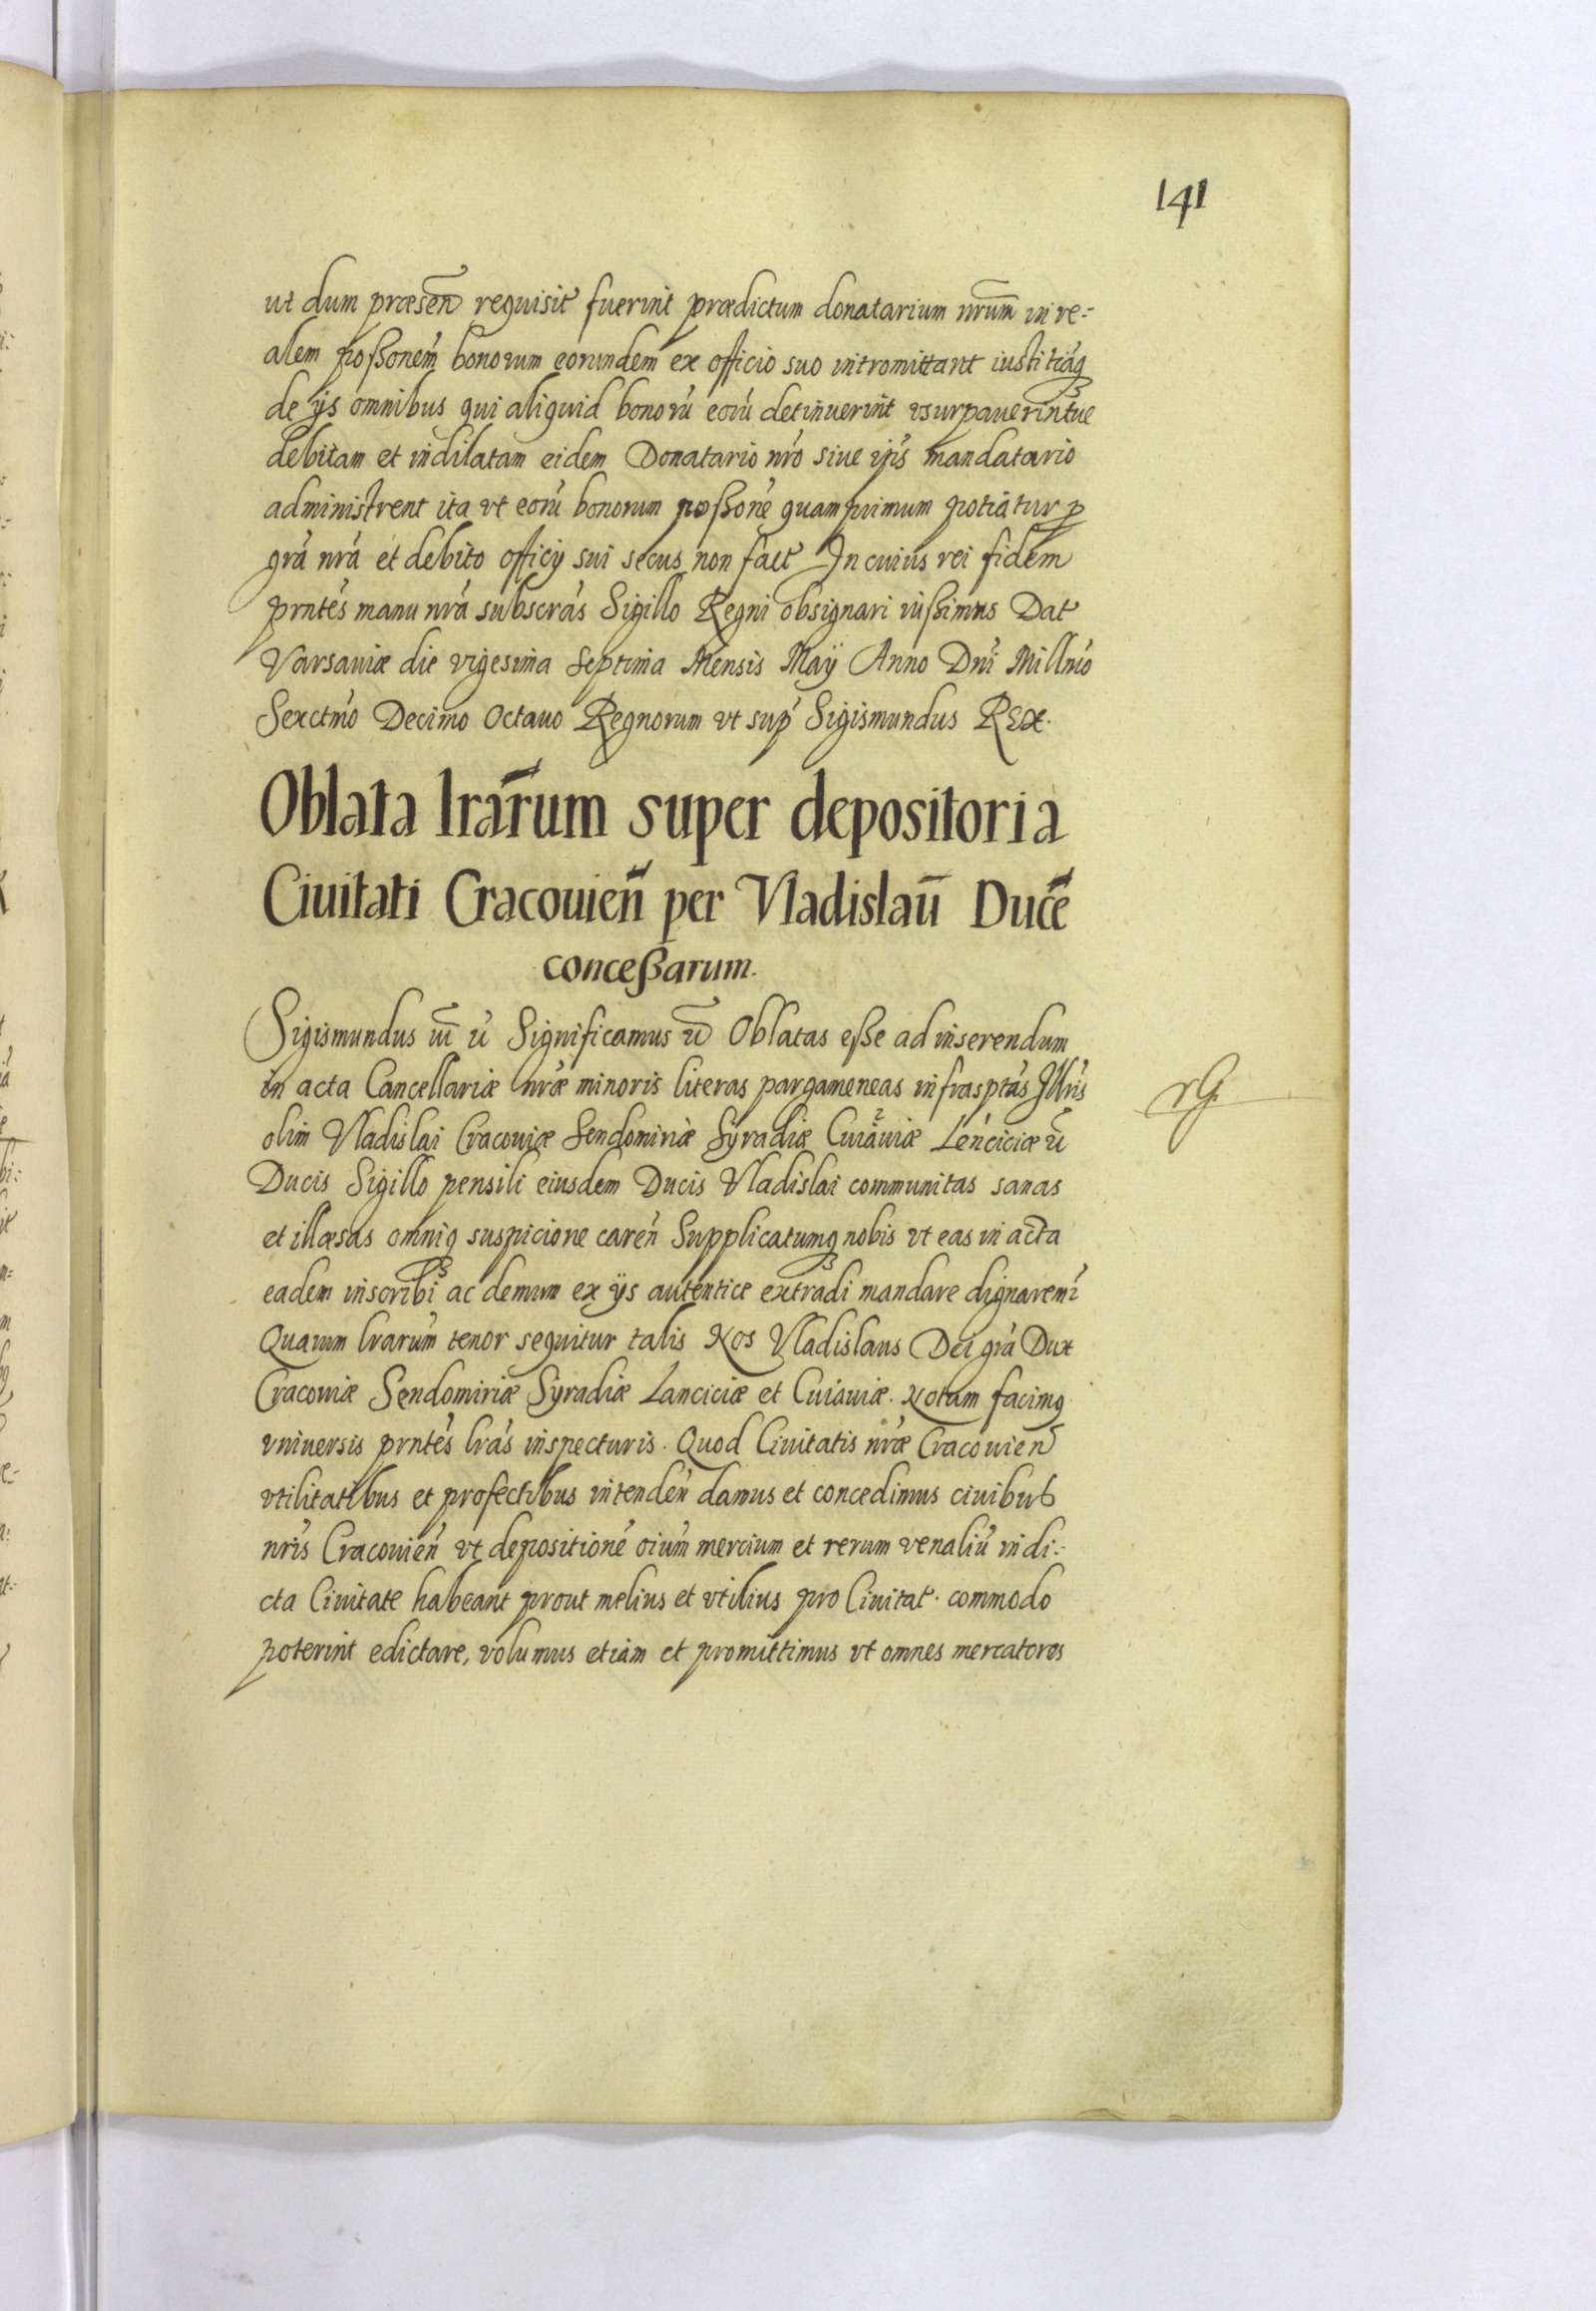 141
ut dum præsen̄ requisit fuerint prædictum donatarium nrum̄ in re-
alem poßonem̄ bonorum eorundem ex officio suo intromittant iustitiaq́
de ijs omnibus qui aliquid bonorú eorú detinuerint vsurpauerintue
debitam et indilatam eidem Donatario nŕo siue ipiś mandatario
administrent ita vt eorú bonorum poßone quamprimum potiatur p
grá nrá et debito officij sui secus non fact In cuius rei fidem
prntés manu nrá subscrás Sigillo Regni obsignari iußimus Dat
Varsauiæ die vigesima Septima Mensis Maÿ Anno Dní Millnió
Sexctmó Decimo Octauo Regnorum vt sup Sigismundus Rex.
Oblata lrarum super depositoria
Ciuitati Cracouien̄ per Vladislau̅ Duce̅
conceßarum.
Sigismundus Significamus Oblatas eße ad inserendum
in acta Cancellariæ nræ minoris literas pargameneas infrasptás Illris
olim Vladislai Cracouiæ Sendomiriæ Syradiæ Cuiauiæ Lenciciæ
Ducis Sigillo pensili eiusdem Ducis Vladislai communitas sanas
et illæsas omniq suspicione careń Supplicatumq nobis vt eas in acta
eadem inscribi ac demum ex ijs autentice extradi mandare dignarem
Quarum lrarum tenor sequitur talis Nos Vladislaus Dei grá Dux
Cracouiæ Sendomiriæ Syradiæ Lanciciæ et Cuiauiæ. Notum facimq
vniuersis prntés lrás inspecturis. Quod Ciuitatis nræ Cracouien
vtilitatibus et profectibus intendeń damus et concedimus ciuibus
nrís Cracouień vt depositioné oium mercium et rerum venaliú in di-
cta Ciuitate habeant prout melius et vtilius pro Ciuitat. commodo
poterint edictare, volumus etiam et promittimus vt omnes mercatores